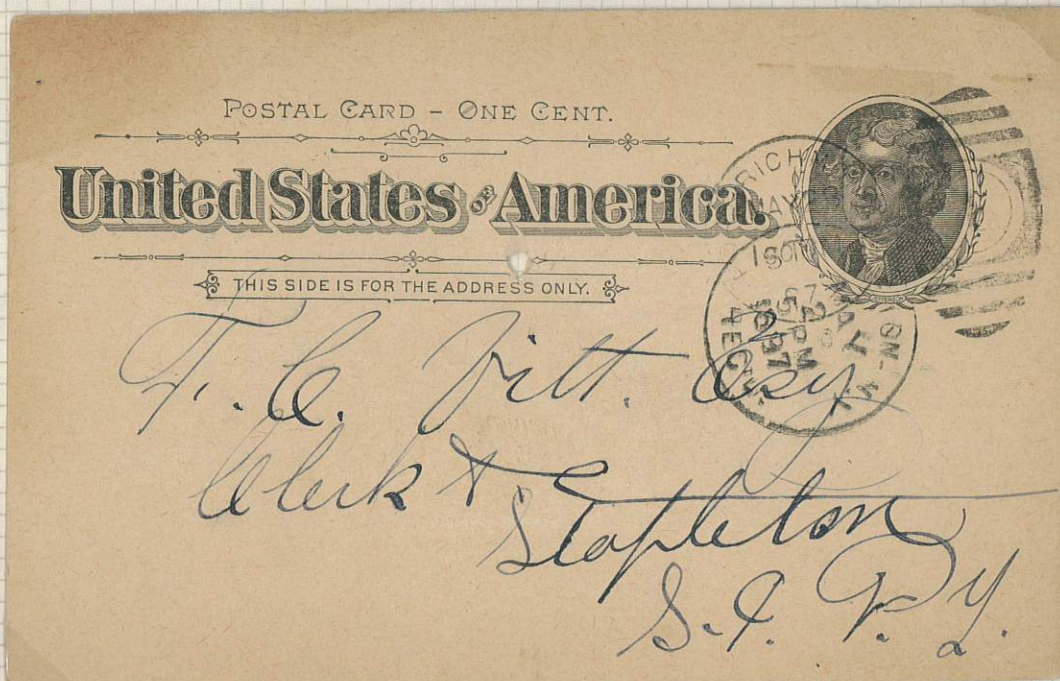 POSTAL CARD – ONE CENT.
United States OF America.
THIS SIDE IS FOR THE ADDRESS ONLY.
RICH
MAY
1897
REC'D.
PM
F. C. Vitt. Esq.
Clerk &
Stapleton
S. I. N. Y.